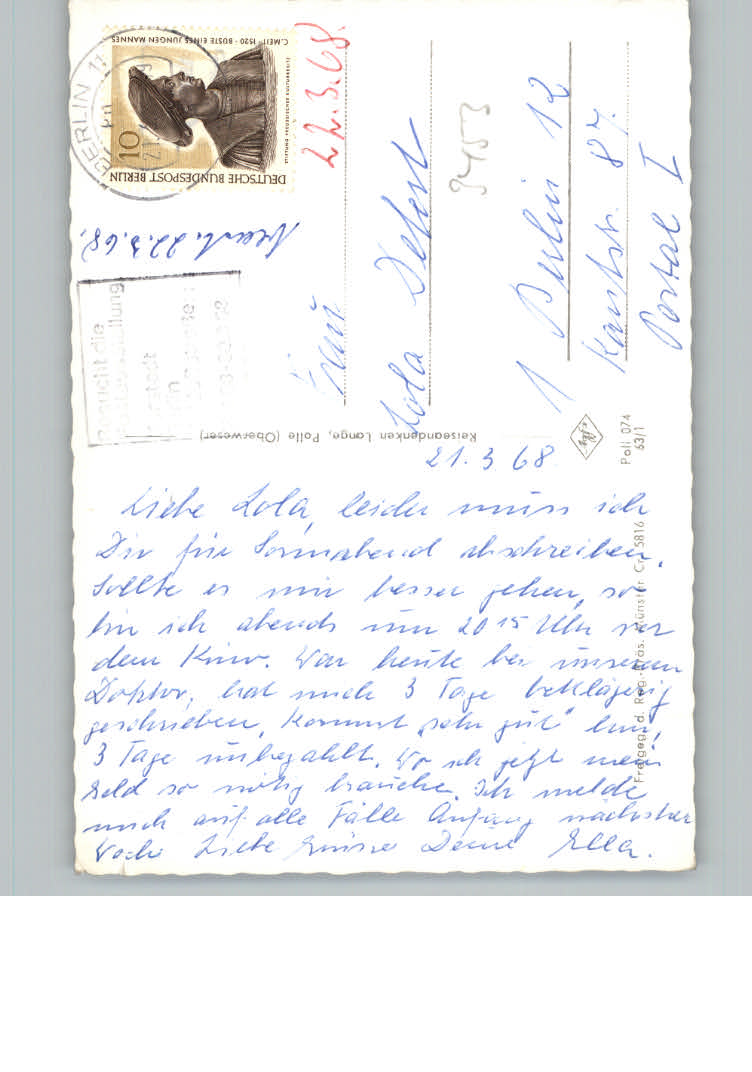 21.3.68.
Liebe Lola, leider muss ich
Dir für Sonnabend abschreiben.
Sollte es mir besser gehen, so
bin ich abends um 20 15 Uhr vor
dem Kino. War heute bei unserem
Doktor, hat mich 3 Tage bettlägerig
geschrieben, kommt "sehr gut" hin,
3 Tage unbezahlt. Wo ich jetzt mein
Geld so nötig brauche. Ich melde
mich auf alle Fälle Anfang nächster
Woche Liebe Grüsse Deine Ella.
Frau
Lola
1 Berlin 12
Kantstr. 87.
Portal I
3453
22.3.68.
22.3.68.
C. MEIT · 1520 · BÜSTE EINES JUNGEN MANNES
STIFTUNG PREUSSISCHER KULTURBESITZ
10
DEUTSCHE BUNDESPOST BERLIN
BERLIN 11
Besucht die
Reiseandenken Lange, Polle (Oberweser)
Agfa
Poli 074
63/1
Freigeg. d. Reg.-Präs. Münster Cr. 5816